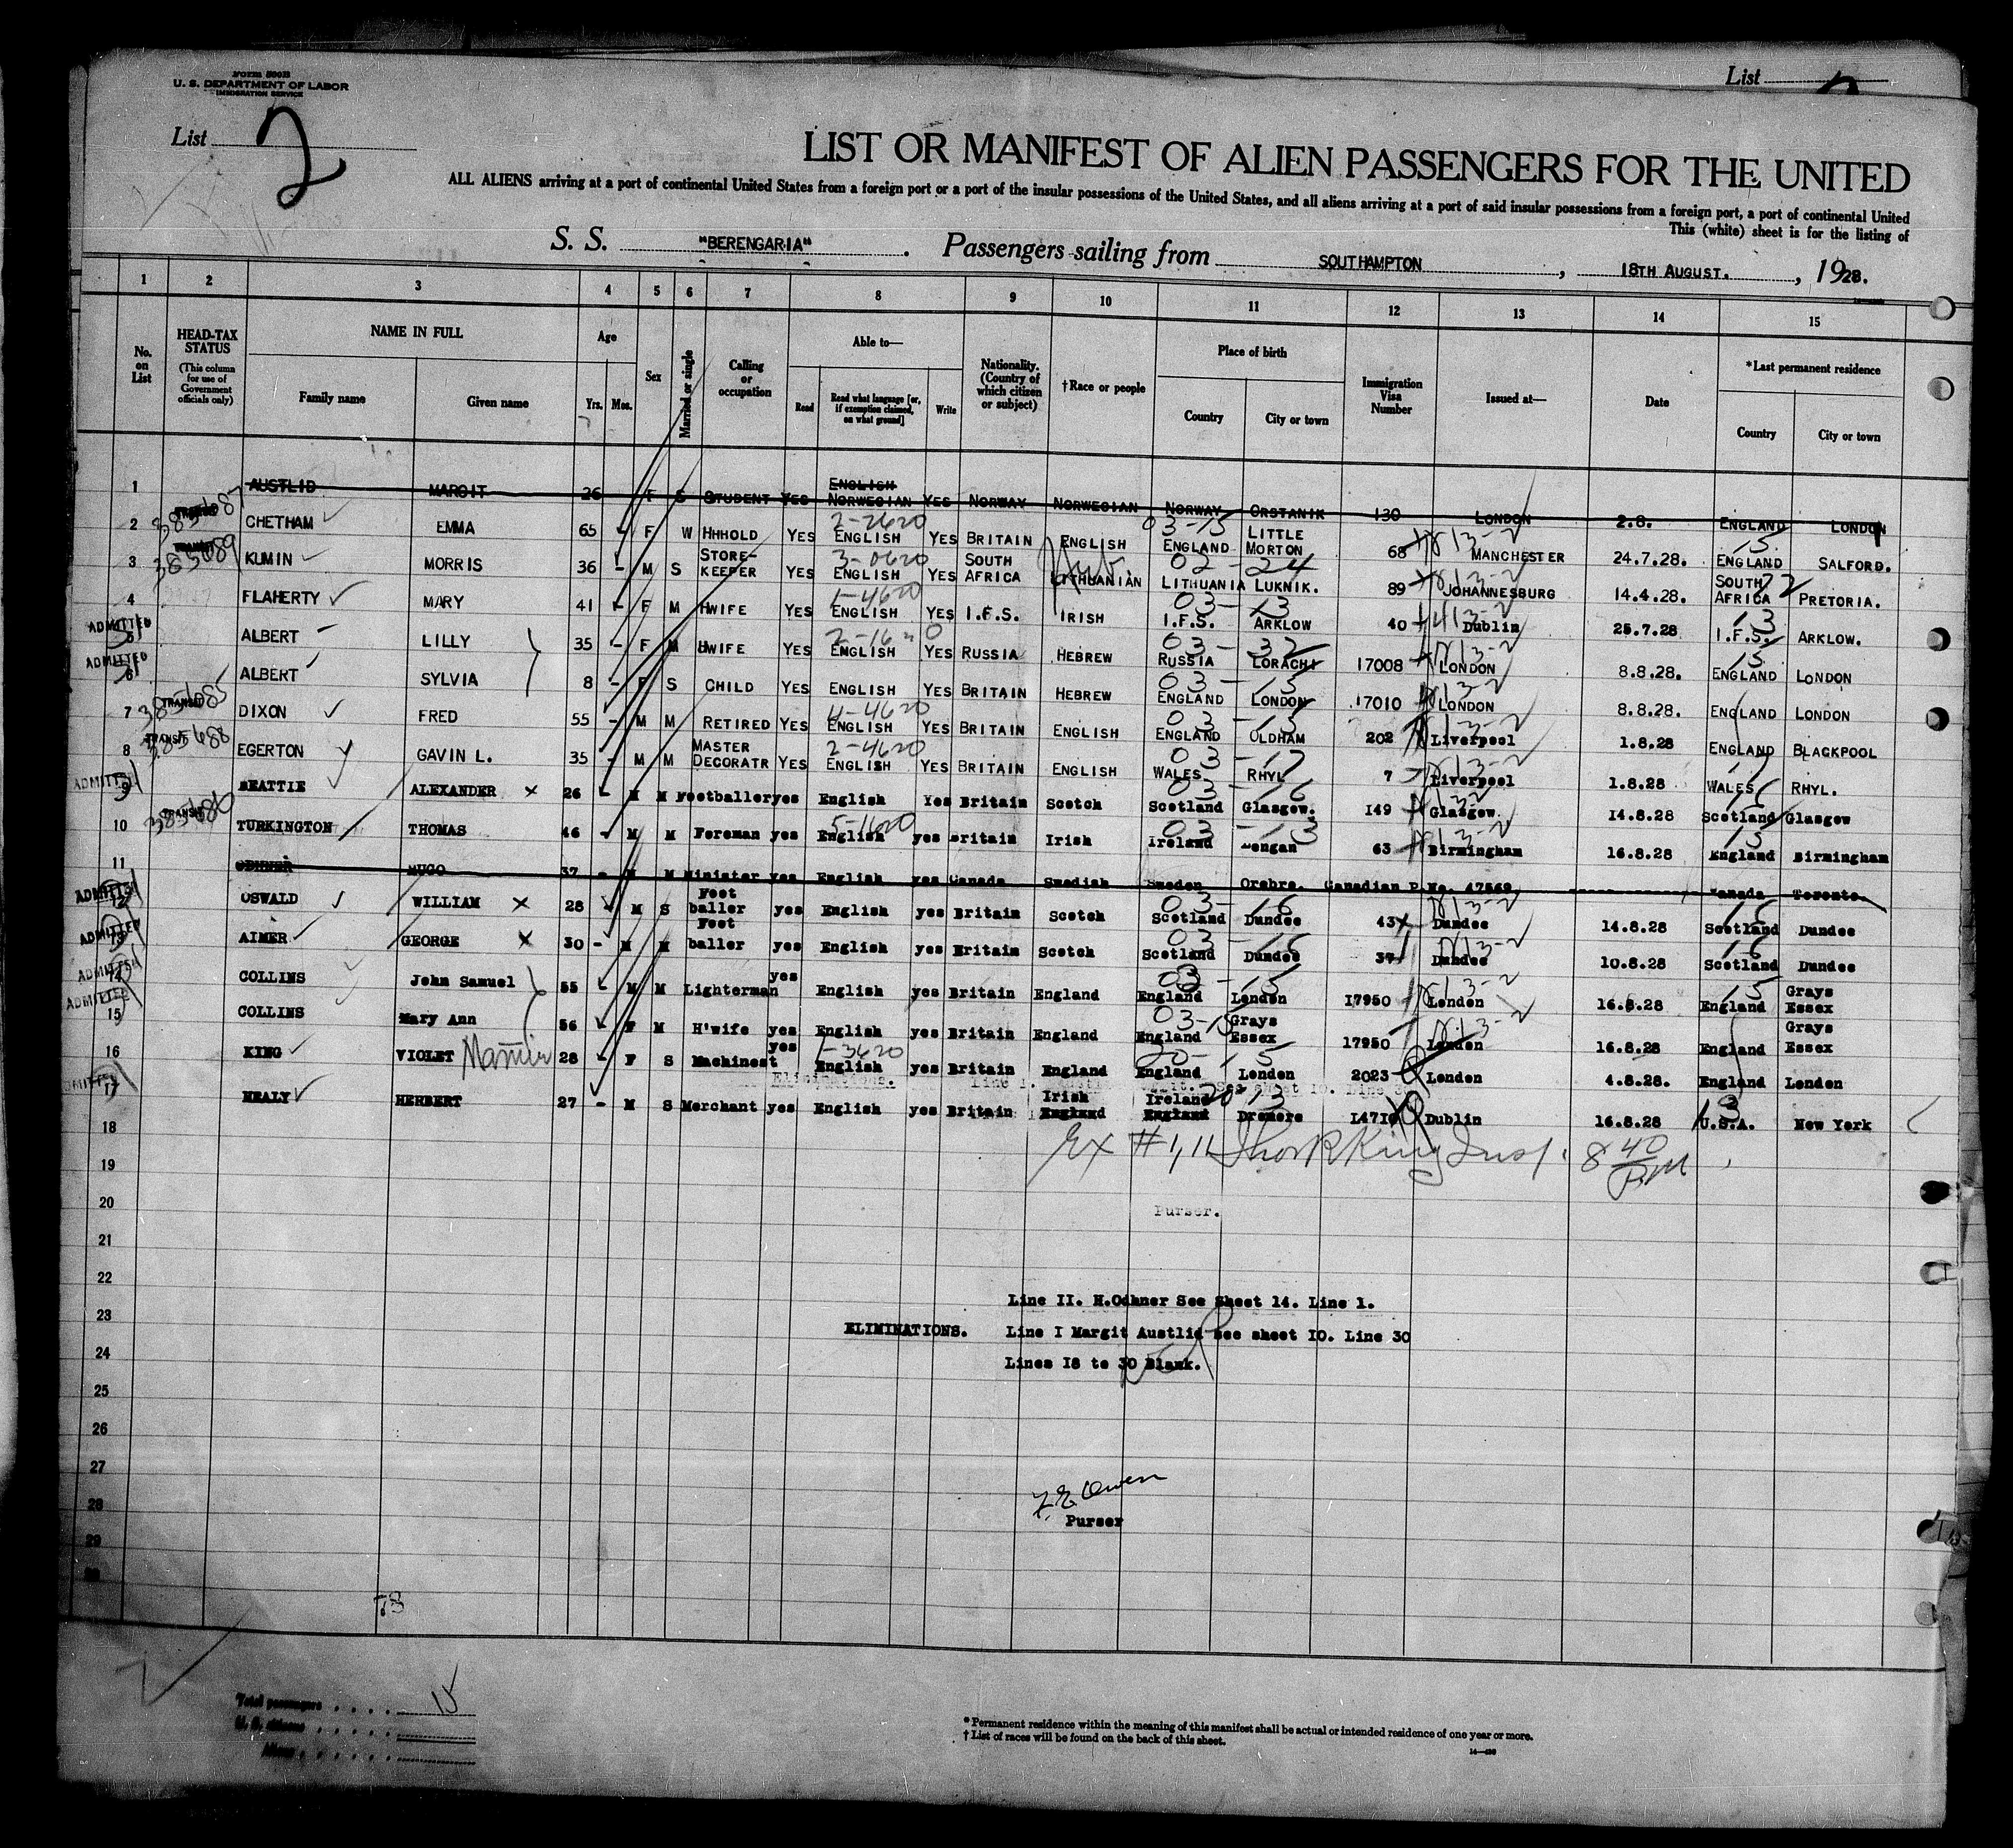 Form 500B
U. S. DEPARTMENT OF LABOR
IMMIGRATION SERVICE
List
List 2
LIST OR MANIFEST OF ALIEN PASSENGERS FOR THE UNITED
ALL ALIENS arriving at a port of continental United States from a foreign port or a port of the insular possessions of the United States, and all aliens arriving at a port of said insular possessions from a foreign port, a port of continental United
This (white) sheet is for the listing of
S. S. "BERENGARIA". Passengers sailing from SOUTHAMPTON, 18TH AUGUST., 1928.
1 2 3 4 5 6 7 8 9 10 11 12 13 14 15
No. on List
HEAD-TAX STATUS
(This column for use of Government officials only)
NAME IN FULL
Family name Given name
Age
Yrs. Mos.
Sex
Married or single
Calling or occupation
Able to—
Read Read what language [or, if exemption claimed, on what ground] Write
Nationality. (Country of which citizen or subject)
†Race or people
Place of birth
Country City or town
Immigration Visa Number
Issued at—
Date
*Last permanent residence
Country City or town
1 AUSTLID MARGIT 26 F S STUDENT YES ENGLISH NORWEGIAN YES NORWAY NORWEGIAN NORWAY ORSTANIK 130 LONDON 2.8. ENGLAND LONDON
2 385687 TRANSIT CHETHAM EMMA 65 F W HHHOLD YES 2-2620 ENGLISH YES BRITAIN ENGLISH 03-15 ENGLAND LITTLE MORTON 68 MANCHESTER 24.7.28. 15 ENGLAND SALFORD.
3 385689 TRANSIT KUMIN MORRIS 36 - M S STORE-KEEPER YES 3-0620 ENGLISH YES SOUTH AFRICA LITHUANIAN 02-24 LITHUANIA LUKNIK. 89 JOHANNESBURG 14.4.28. SOUTH AFRICA PRETORIA.
4 FLAHERTY MARY 41 - F M HWIFE YES 1-4620 ENGLISH YES I.F.S. IRISH 03-13 I.F.S. ARKLOW 40 Dublin 25.7.28 13 I.F.S. ARKLOW.
ADMITTED 5 ALBERT LILLY 35 - F M HWIFE YES ENGLISH YES RUSSIA HEBREW 03-32 RUSSIA LORACHI 17008 LONDON 8.8.28. 15 ENGLAND LONDON
ADMITTED 6 ALBERT SYLVIA 8 - F S CHILD YES ENGLISH YES BRITAIN HEBREW 03-15 ENGLAND LONDON 17010 LONDON 8.8.28. ENGLAND LONDON
7 385685 TRANSIT DIXON FRED 55 - M M RETIRED YES 4-4620 ENGLISH YES BRITAIN ENGLISH 03-15 ENGLAND OLDHAM 202 Liverpool 1.8.28 ENGLAND BLACKPOOL
8 385688 TRANSIT EGERTON GAVIN L. 35 - M M MASTER DECORATR YES 2-4620 ENGLISH YES BRITAIN ENGLISH 03-17 WALES RHYL 7 Liverpool 1.8.28 17 WALES RHYL.
ADMITTED 9 BEATTIE ALEXANDER x 26 - M M Footballer yes English Yes Britain Scotch 03-16 Scotland Glasgow. I49 Glasgow. 14.8.28 16 Scotland Glasgow
10 385686 TRANSIT TURKINGTON THOMAS 46 - M M Foreman yes 5-1620 English yes Britain Irish 03-13 Ireland 63 Birmingham 16.8.28 15 England Birmingham
11 HUGO 37 - M M Minister yes English yes Canada Swedish Sweden Orebro. Canadian P. No. 47569 Canada Toronto.
ADMITTED 12 OSWALD WILLIAM x 28 M S Foot baller yes English yes Britain Scotch 03-16 Scotland Dundee 43 Dundee 14.8.28 16 Scotland Dundee
ADMITTED 13 AIMER GEORGE x 30 - M M Foot baller yes English yes Britain Scotch 03-16 Scotland Dundee 37 Dundee 10.8.28 16 Scotland Dundee
ADMITTED 14 COLLINS John Samuel 55 - M M Lighterman yes English yes Britain England 03-15 England London I7950 London 16.8.28 15 England Grays Essex
ADMITTED 15 COLLINS Mary Ann 56 F M H'wife yes English yes Britain England 03-15 England Grays Essex 17950 London 16.8.28 England Grays Essex
16 KING VIOLET 28 F S Machinest yes 1-3620 English yes Britain England 20-15 England London 2023 London 4.8.28. England London
ADMITTED 17 HEALY HERBERT 27 - M S Merchant yes English yes Britain Irish England Ireland England 20 13 Dromore I4710 Dublin 16.8.28 U.S.A. New York
18
Ex # 1, 11 Insp. 8 40 P.M
19
20
Purser.
21
22
Line II. H.Odhner See Sheet 14. Line 1.
23
ELIMINATIONS. Line I Margit Austlid See sheet IO. Line 30
24
Lines I8 to 30 Blank.
25
26
27
28
Purser
29
30
Total passengers . . . . 15
U. S. citizens . . . . .
Aliens . . . . . .
*Permanent residence within the meaning of this manifest shall be actual or intended residence of one year or more.
†List of races will be found on the back of this sheet.